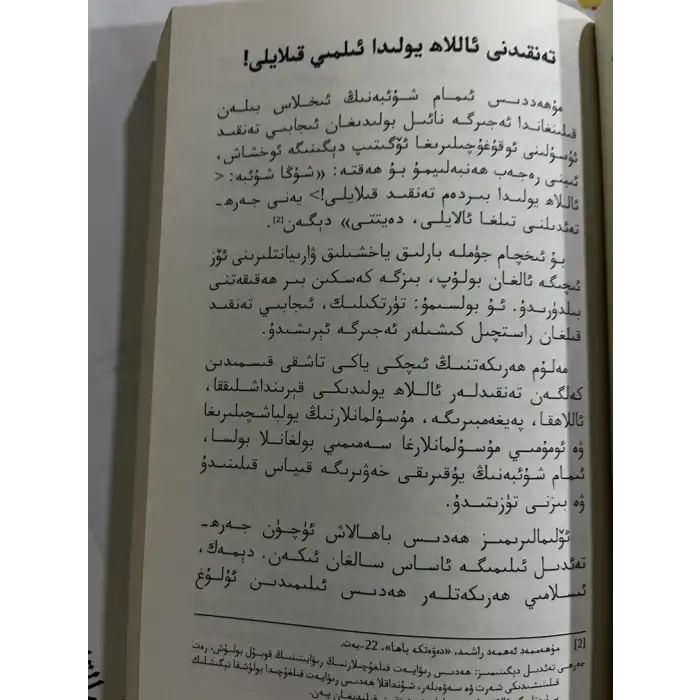 تەنقىدنى ئاللاھ يولىدا ئىلمىي قىلايلى!
مۇھەددىس ئىمام شۇئبەنىڭ ئىخلاس بىلەن
قىلىنغاندا ئەجىرگە نائىل بولىدىغان ئىجابىي تەنقىد
ئۇسۇلىنى ئوقۇغۇچىلىرىغا ئۆگىتىپ دېگىنىگە ئوخشاش،
ئىبنى رەجەب ھەنبەلىيمۇ بۇ ھەقتە: «شۇڭا شۇئبە: <
ئاللاھ يولىدا بىردەم تەنقىد قىلايلى!> يەنى جەرھ-
تەئدىلنى تىلغا ئالايلى، دەيتتى» دېگەن[2].
بۇ ئىخچام جۈملە بارلىق ياخشىلىق ۋارىيانتلىرىنى ئۆز
ئىچىگە ئالغان بولۇپ، بىزگە كەسكىن بىر ھەقىقەتنى
بىلدۈرىدۇ. ئۇ بولسىمۇ: تۈرتكىلىك، ئىجابىي تەنقىد
قىلغان راستچىل كىشىلەر ئەجىرگە ئېرىشىدۇ.
مەلۇم ھەرىكەتنىڭ ئىچكى ياكى تاشقى قىسمىدىن
كەلگەن تەنقىدلەر ئاللاھ يولىدىكى قېرىنداشلىققا،
ئاللاھقا، پەيغەمبىرىگە، مۇسۇلمانلارنىڭ يولباشچىلىرىغا
ۋە ئومۇمىي مۇسۇلمانلارغا سەمىمىي بولغانلا بولسا،
ئىمام شۇئبەنىڭ يۇقىرىقى خەۋىرىگە قىياس قىلىنىدۇ
ۋە بىزنى تۈزىتىدۇ.
ئۆلىمالىرىمىز ھەدىس باھالاش ئۈچۈن جەرھ-
تەئدىل ئىلىمىگە ئاساس سالغان ئىكەن. دېمەك،
ئىسلامىي ھەرىكەتلەر ھەدىس ئىلىمىدىن ئۇلۇغ
[2] مۇھەممەد ئەھمەد راشىد، «دەۋەتكە باھا»، 22-بەت.
جەرھى تەئدىل دېگىنىمىز: ھەدىس رىۋايەت قىلغۇچىلارنىڭ رىۋايىتىنىڭ قوبۇل بولۇش، رەت
قىلىنىشىدىكى شەرت ۋە سەۋەبلەر، شۇنداقلا ھەدىس رىۋايەت قىلغۇچىدا بولۇشقا تېگىشلىك